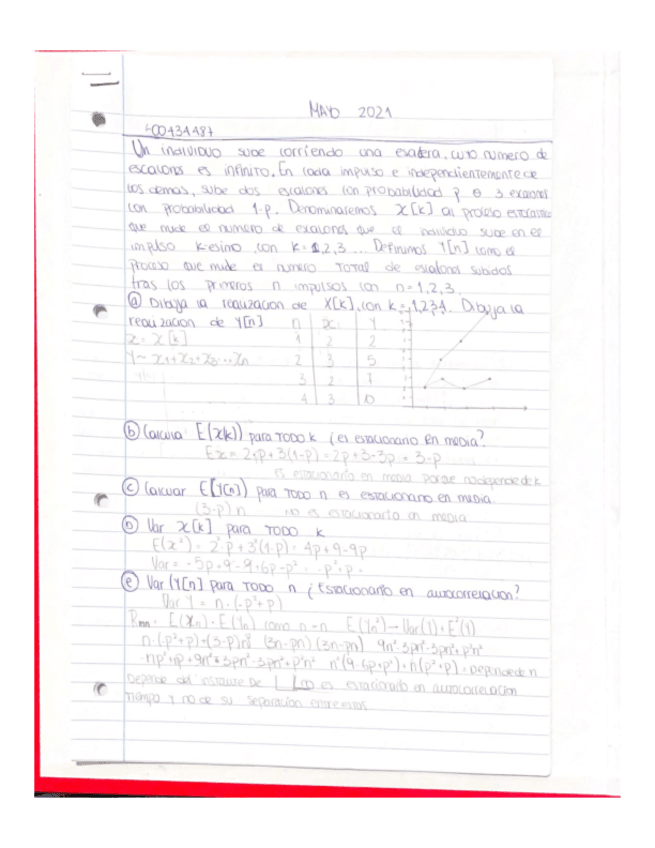 MAYO 2021
Un individuo sube corriendo una escalera, cuyo numero de
escalones es infinito. En cada impulso e independientemente de
los demas, sube dos escalones con probabilidad p o 3 escalones
con probabilidad 1-p. Denominaremos X[k] al proceso estocastico
que mide el numero de escalones que el individuo sube en el
impulso k-esimo con k=1,2,3... Definimos Y[n] como el
proceso que mide el numero TOTAL de escalones subidos
tras los primeros n impulsos con n=1,2,3.
a) Dibuja la realizacion de X[k], con k=1,2,3,4. Dibuja la
realizacion de Y[n] n x Y
x = X[k] 1 2 2
Y~ x1+x2+x3...xn 2 3 5
3 2 7
4 3 10
b) Calcula E(x[k]) para TODO k ¿es estacionario en media?
Ex = 2·p+3(1-p) = 2p+3-3p = 3-p
Es estacionario en media porque no depende de k
c) Calcular E[Y[n]] para TODO n es estacionario en media.
(3-p) n no es estacionario en media
D) Var x[k] para TODO k
E(x²) = 2²·p+3²(1-p) = 4p+9-9p
Var = -5p+9-9+6p-p² = -p²+p
e) Var(Y[n] para TODO n ¿Estacionario en autocorrelacion?
Var Y = n·(-p²+p)
E(Xn)·E(Yn) como n=n E(Yn²) = Var(Y)+E²(Y)
n·(-p²+p)+(3-p)n² (3n-pn)(3n-pn) 9n²-3pn²-3pn²+p²n²
-np²+np+9n²-3pn²-3pn²+p²n² n²(9-6p+p²)+n(-p²+p) = Depende de n
Depende del instante de no es estacionario en autocorrelacion
tiempo y no de su separacion entre estos